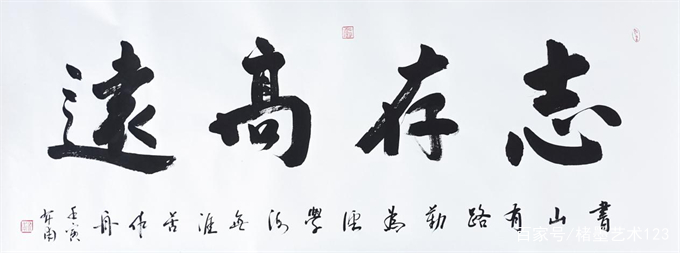 志存高遠
書山有路勤為徑學海無涯苦作舟
壬寅
百家号/楮墨艺术123